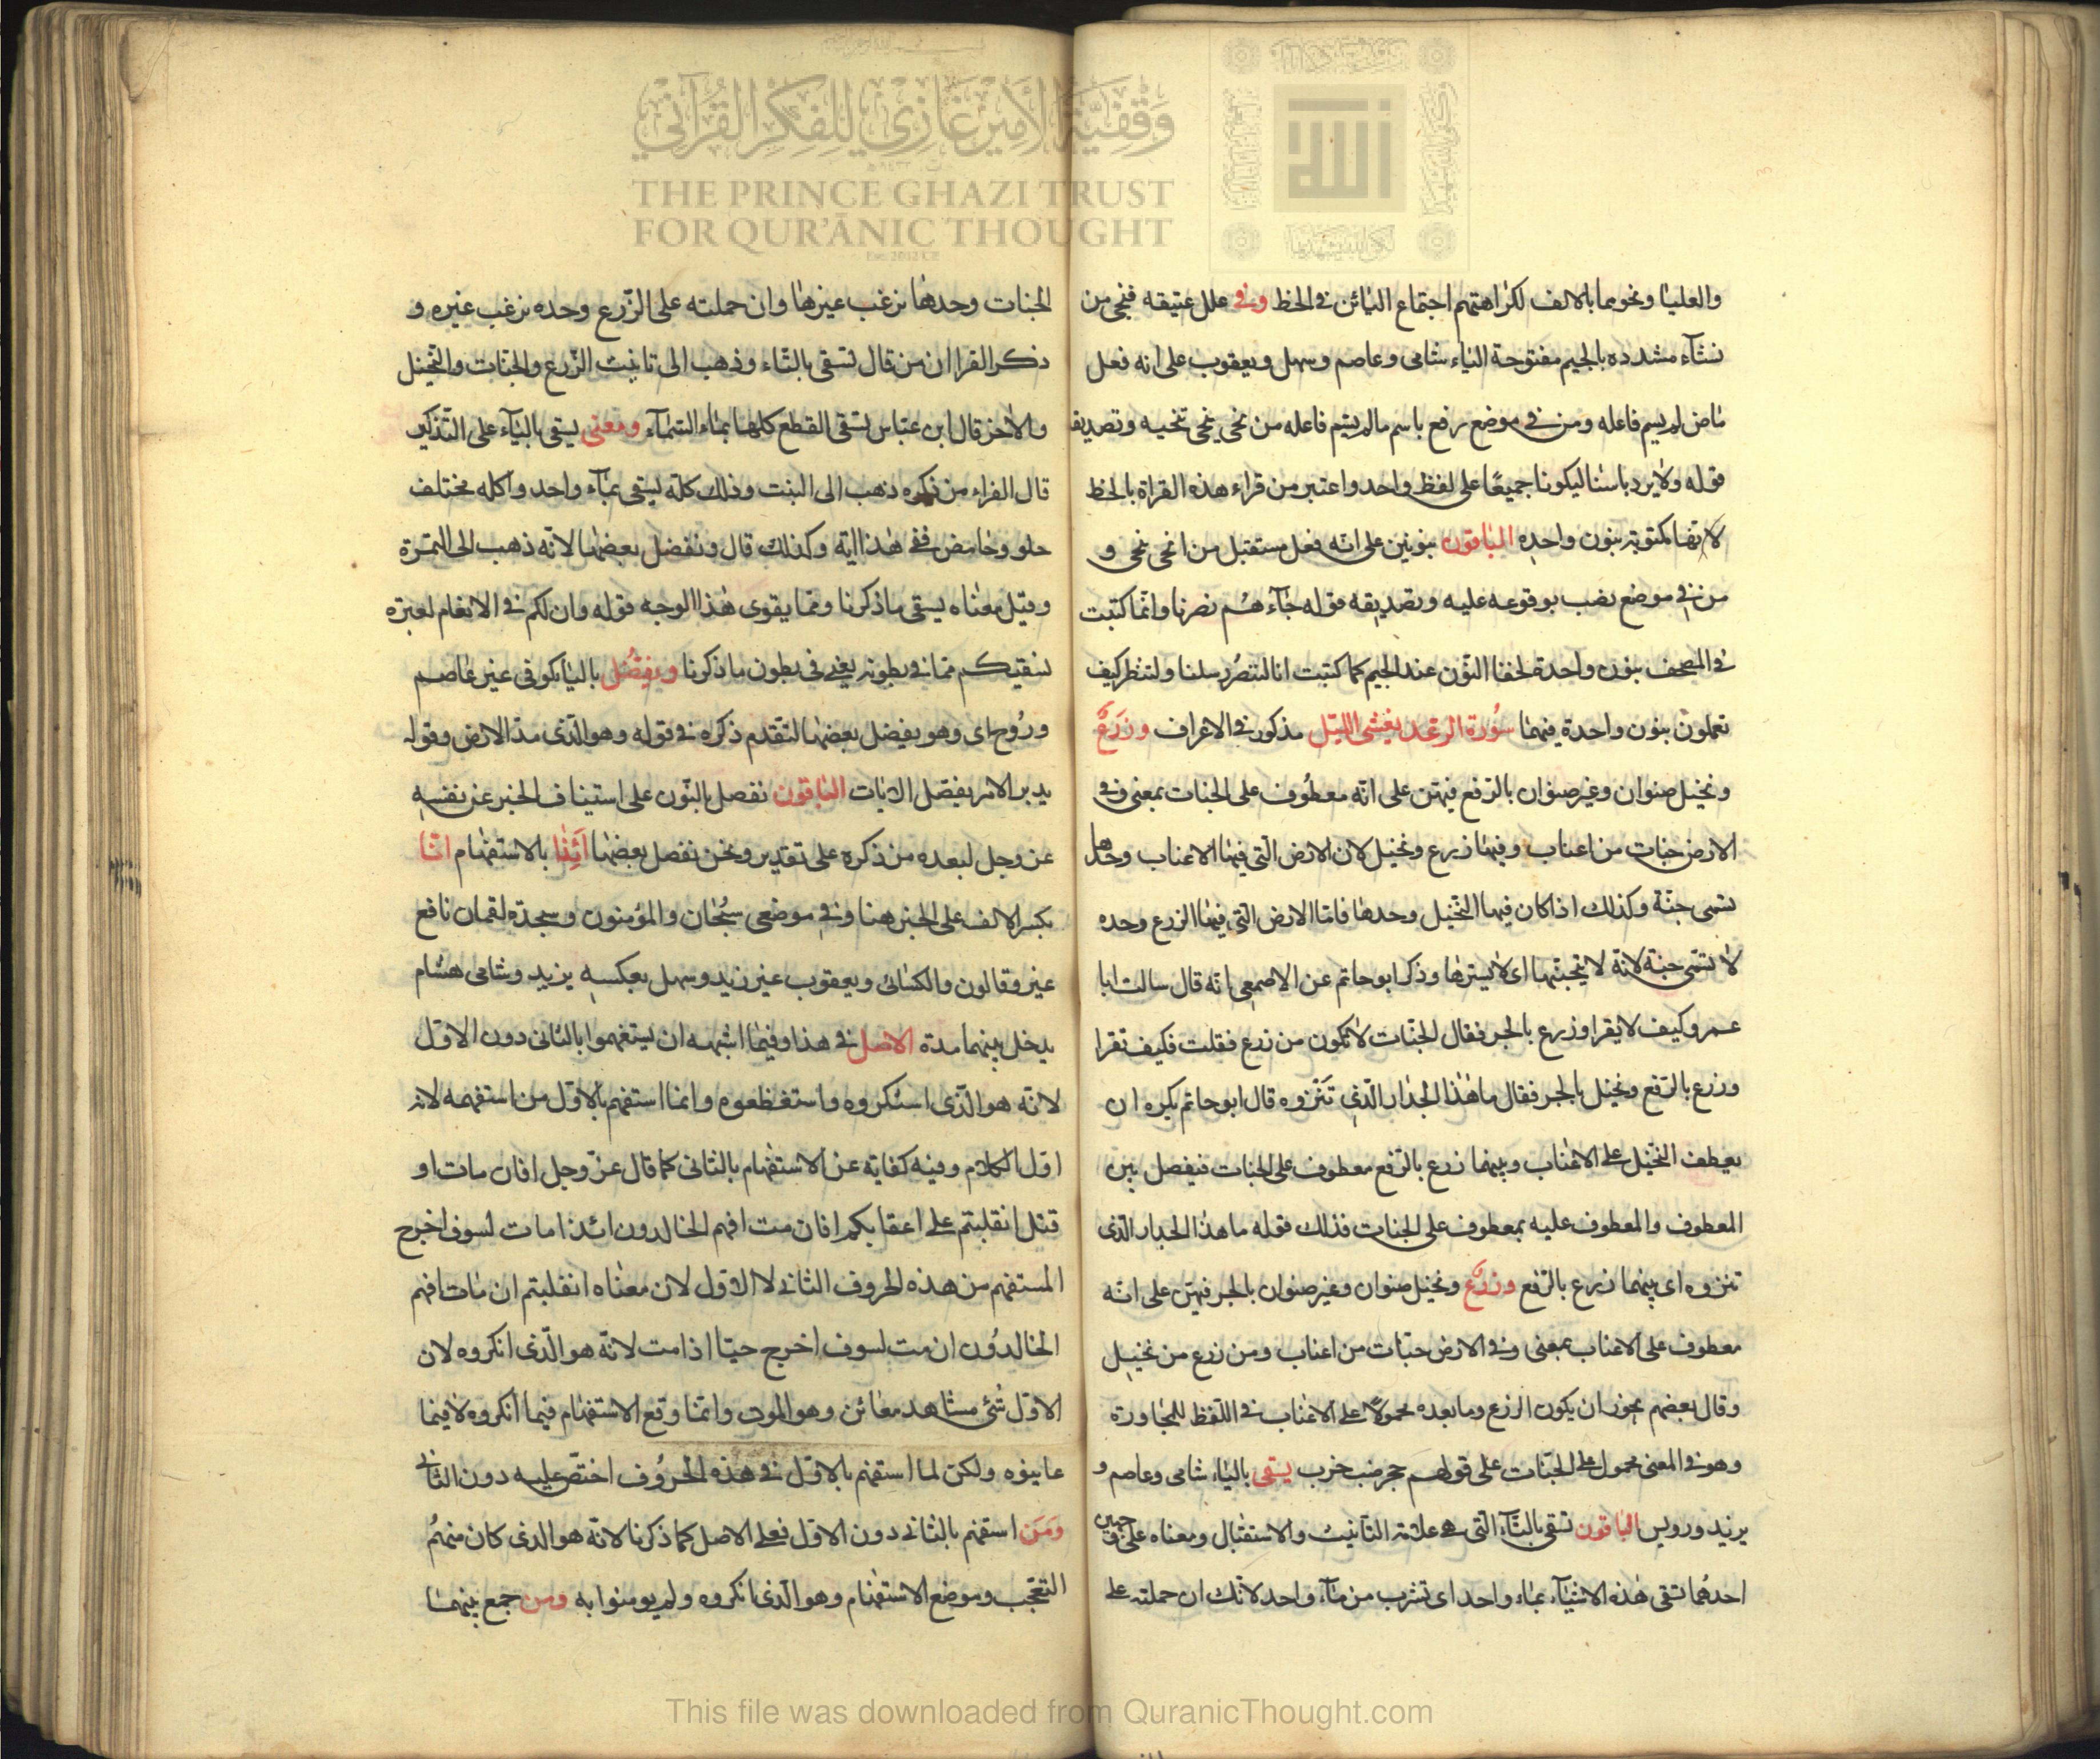 وقفية الأمير غازي للفكر القرآني
THE PRINCE GHAZI TRUST
FOR QUR'ĀNIC THOUGHT
والعليا ونحوهما بالالف لكراهتهم اجتماع اليائن في الخط وفي علل عتيقه فنجى من
نشآء مشدده بالجيم مفتوحة الياء شامى وعاصم وسهل ويعقوب على انه فعل
ماض لم يسم فاعله ومن في موضع رفع باسم مالم يسم فاعله من نجى ينجى تنجيه وتصديقه
قوله ولا يرد باسنا ليكونا جميعًا على لفظ واحد واعتبر من قراء هذه القراة بالخط
لانها مكتوبة بنون واحده الباقون بنونين على انه فعل مستقبل من انجى ينجى و
من في موضع نصب بوقوعه عليه وتصديقه قوله جآءهم نصرنا وانما كتبت
في المصحف بنون واحدة لخفا النون عند الجيم كما كتبت انا لننصر رسلنا ولننظر كيف
تعملون بنون واحدة فيهما سورة الرعد يغشى الليل مذكور في الاعراف وزرع
ونخيل صنوان وغير صنوان بالرفع فيهن على انه معطوف على الجنات بمعنى وفي
الارض جنات من اعناب وفيها زرع ونخيل لان الارض التى فيها الاعناب وحدها
تسمى جنة وكذلك اذا كان فيها النخيل وحدها فاما الارض التى فيها الزرع وحده
لا تسمى جنة لانه لا يجنها اى لا يسترها وذكر ابو حاتم عن الاصمعى انه قال سالت ابا
عمرو كيف لا يقرا وزرع بالجر فقال الجنات لا تكون من زرع فقلت فكيف تقرا
وزرع بالرفع ونخيل بالجر فقال ما هذا الجدار الذى تنزوه قال ابو حاتم يكره ان
يعطف النخيل على الاعناب وبينهما زرع بالرفع معطوف على الجنات فيفصل بين
المعطوف والمعطوف عليه بمعطوف على الجنات فذلك قوله ما هذا الجدار الذى
تنزوه اى بينهما زرع بالرفع وزرع ونخيل صنوان وغير صنوان بالجر فيهن على انه
معطوف على الاعناب بمعنى وفي الارض جنات من اعناب ومن زرع من نخيل
وقال بعضهم يجوز ان يكون الزرع وما بعده محمولا على الاعناب في اللفظ للمجاورة
وهو في المعنى محمول على الجنات على قولهم جحر ضب خرب يسقى بالياء شامى وعاصم و
يزيد ورويس الباقون تسقى بالتاء التى هى علامة التانيث والاستقبال ومعناه على
احدهما تسقى هذه الاشيآء بماء واحد اى تشرب من مآء واحد لانك ان حملته على
الجنات وحدها نرغب غيرها وان حملته على الزرع وحده نرغب غيره و
ذكر الفرا ان من قال تسقى بالتاء وذهب الى تانيث الزرع والجنات والنخيل
والاخر قال ابن عباس تسقى القطع كلها بماء السمآء ومعنى يسقى باليآء على التذكير
قال الفراء من ذكره ذهب الى النبت وذلك كله يسقى بمآء واحد واكله مختلف
حلو وحامض ففى هذا اية وكذلك قال ونفضل بعضها لانه ذهب الى الثمرة
وقيل معناه يسقى ما ذكرنا ومما يقوى هذا الوجه قوله وان لكم في الانعام لعبرة
نسقيكم مما في بطونه يعني في بطون ما ذكرنا ويفضل باليا كوفى غير عاصم
وروح اى وهو يفضل بعضها لتقدم ذكره في قوله وهو الذى مد الارض وقوله
يدبر الامر يفصل الايات الباقون نفضل بالنون على استيناف الخبر عن نفسه
عز وجل لبعده من ذكره على تقدير ونحن نفضل بعضها أئذا بالاستفهام انا
بكسر الالف على الخبر هنا وفي موضعى سبحان والمؤمنون وسجدة لقمان نافع
غير وقالون والكسائى ويعقوب غير زيد وسهل بعكسه يزيد وشامى هشام
يدخل بينهما مدة الاصل في هذا وفيما اشبهه ان يستفهموا بالثانى دون الاول
لانه هو الذى استنكروه واستفظعوه وانما استفهم بالاول من استفهمه لانه
اول الكلام وفيه كفاية عن الاستفهام بالثانى كما قال عز وجل افان مات او
قتل انقلبتم على اعقابكم افان مت افهم الخالدون ائذا ما مت لسوف اخرج
المستفهم من هذه الحروف الثانى لا الاول لان معناه انقلبتم ان مات افهم
الخالدون ان مت لسوف اخرج حيا اذا مت لانه هو الذى انكروه لان
الاول شئ مشاهد معائن وهو الموت وانما وقع الاستفهام فيما انكروه لا فيما
عاينوه ولكن لما استفهم بالاول في هذه الحروف اختصر عليه دون الثانى
ومن استفهم بالثانى دون الاول فعلى الاصل كما ذكرنا لانه هو الذى كان منهم
التعجب وموضع الاستفهام وهو الذى انكروه ولم يومنوا به ومن جمع بينهما
This file was downloaded from QuranicThought.com